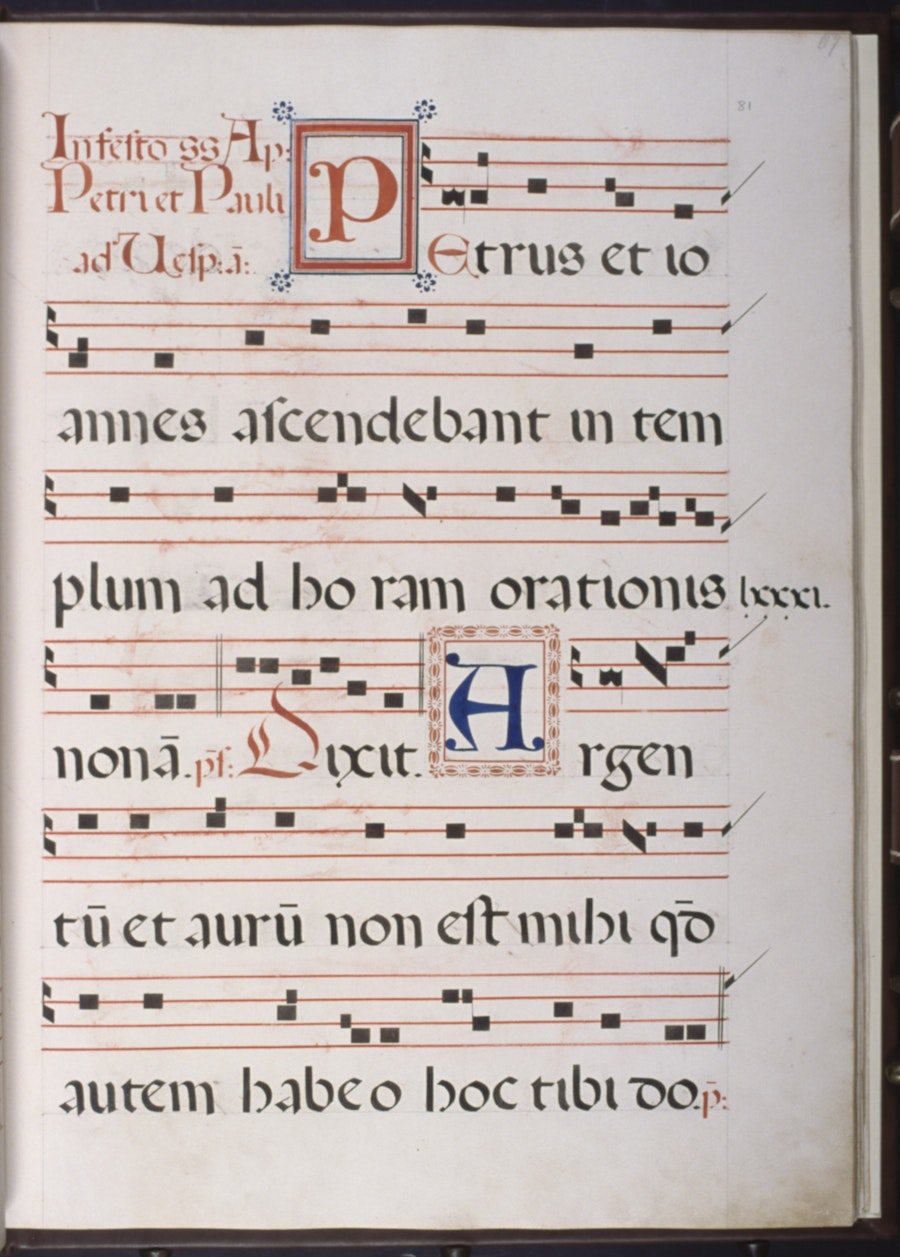 81
In festo ss Ap:
Petri et Pauli
ad Uesp:ā:
PEtrus et io
annes ascendebant in tem
plum ad ho ram orationis lxxxi.
nonā. ps: Dixit. Argen
tū et aurū non est mihi qd̄
autem habeo hoc tibi do. p̄: